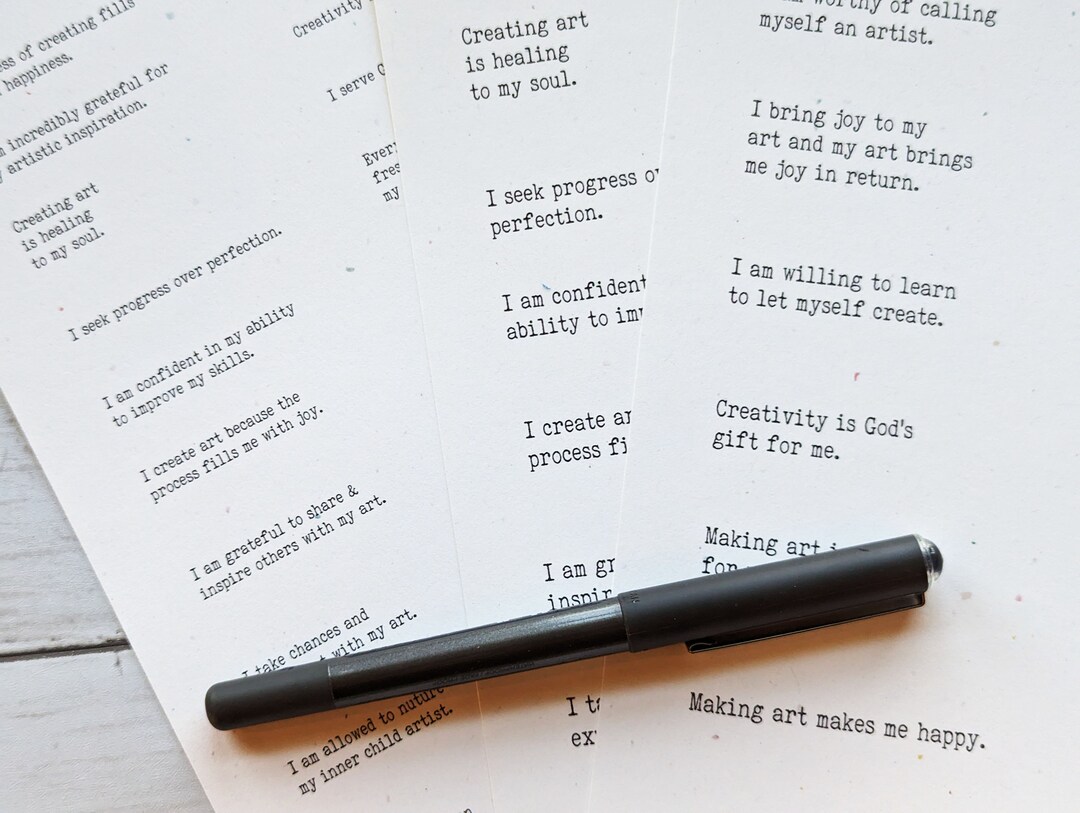 ss of creating fills
happiness.
incredibly grateful for
artistic inspiration.
Creating art
is healing
to my soul.
I seek progress over perfection.
I am confident in my ability
to improve my skills.
I create art because the
process fills me with joy.
I am grateful to share &
inspire others with my art.
I take chances and
with my art.
I am allowed to nuture
my inner child artist.
Creativity
I serve
Creating art
is healing
to my soul.
I seek progress
perfection.
I am confident
ability to
I create
process
I am
I
worthy of calling
myself an artist.
I bring joy to my
art and my art brings
me joy in return.
I am willing to learn
to let myself create.
Creativity is God's
gift for me.
Making art
for
Making art makes me happy.